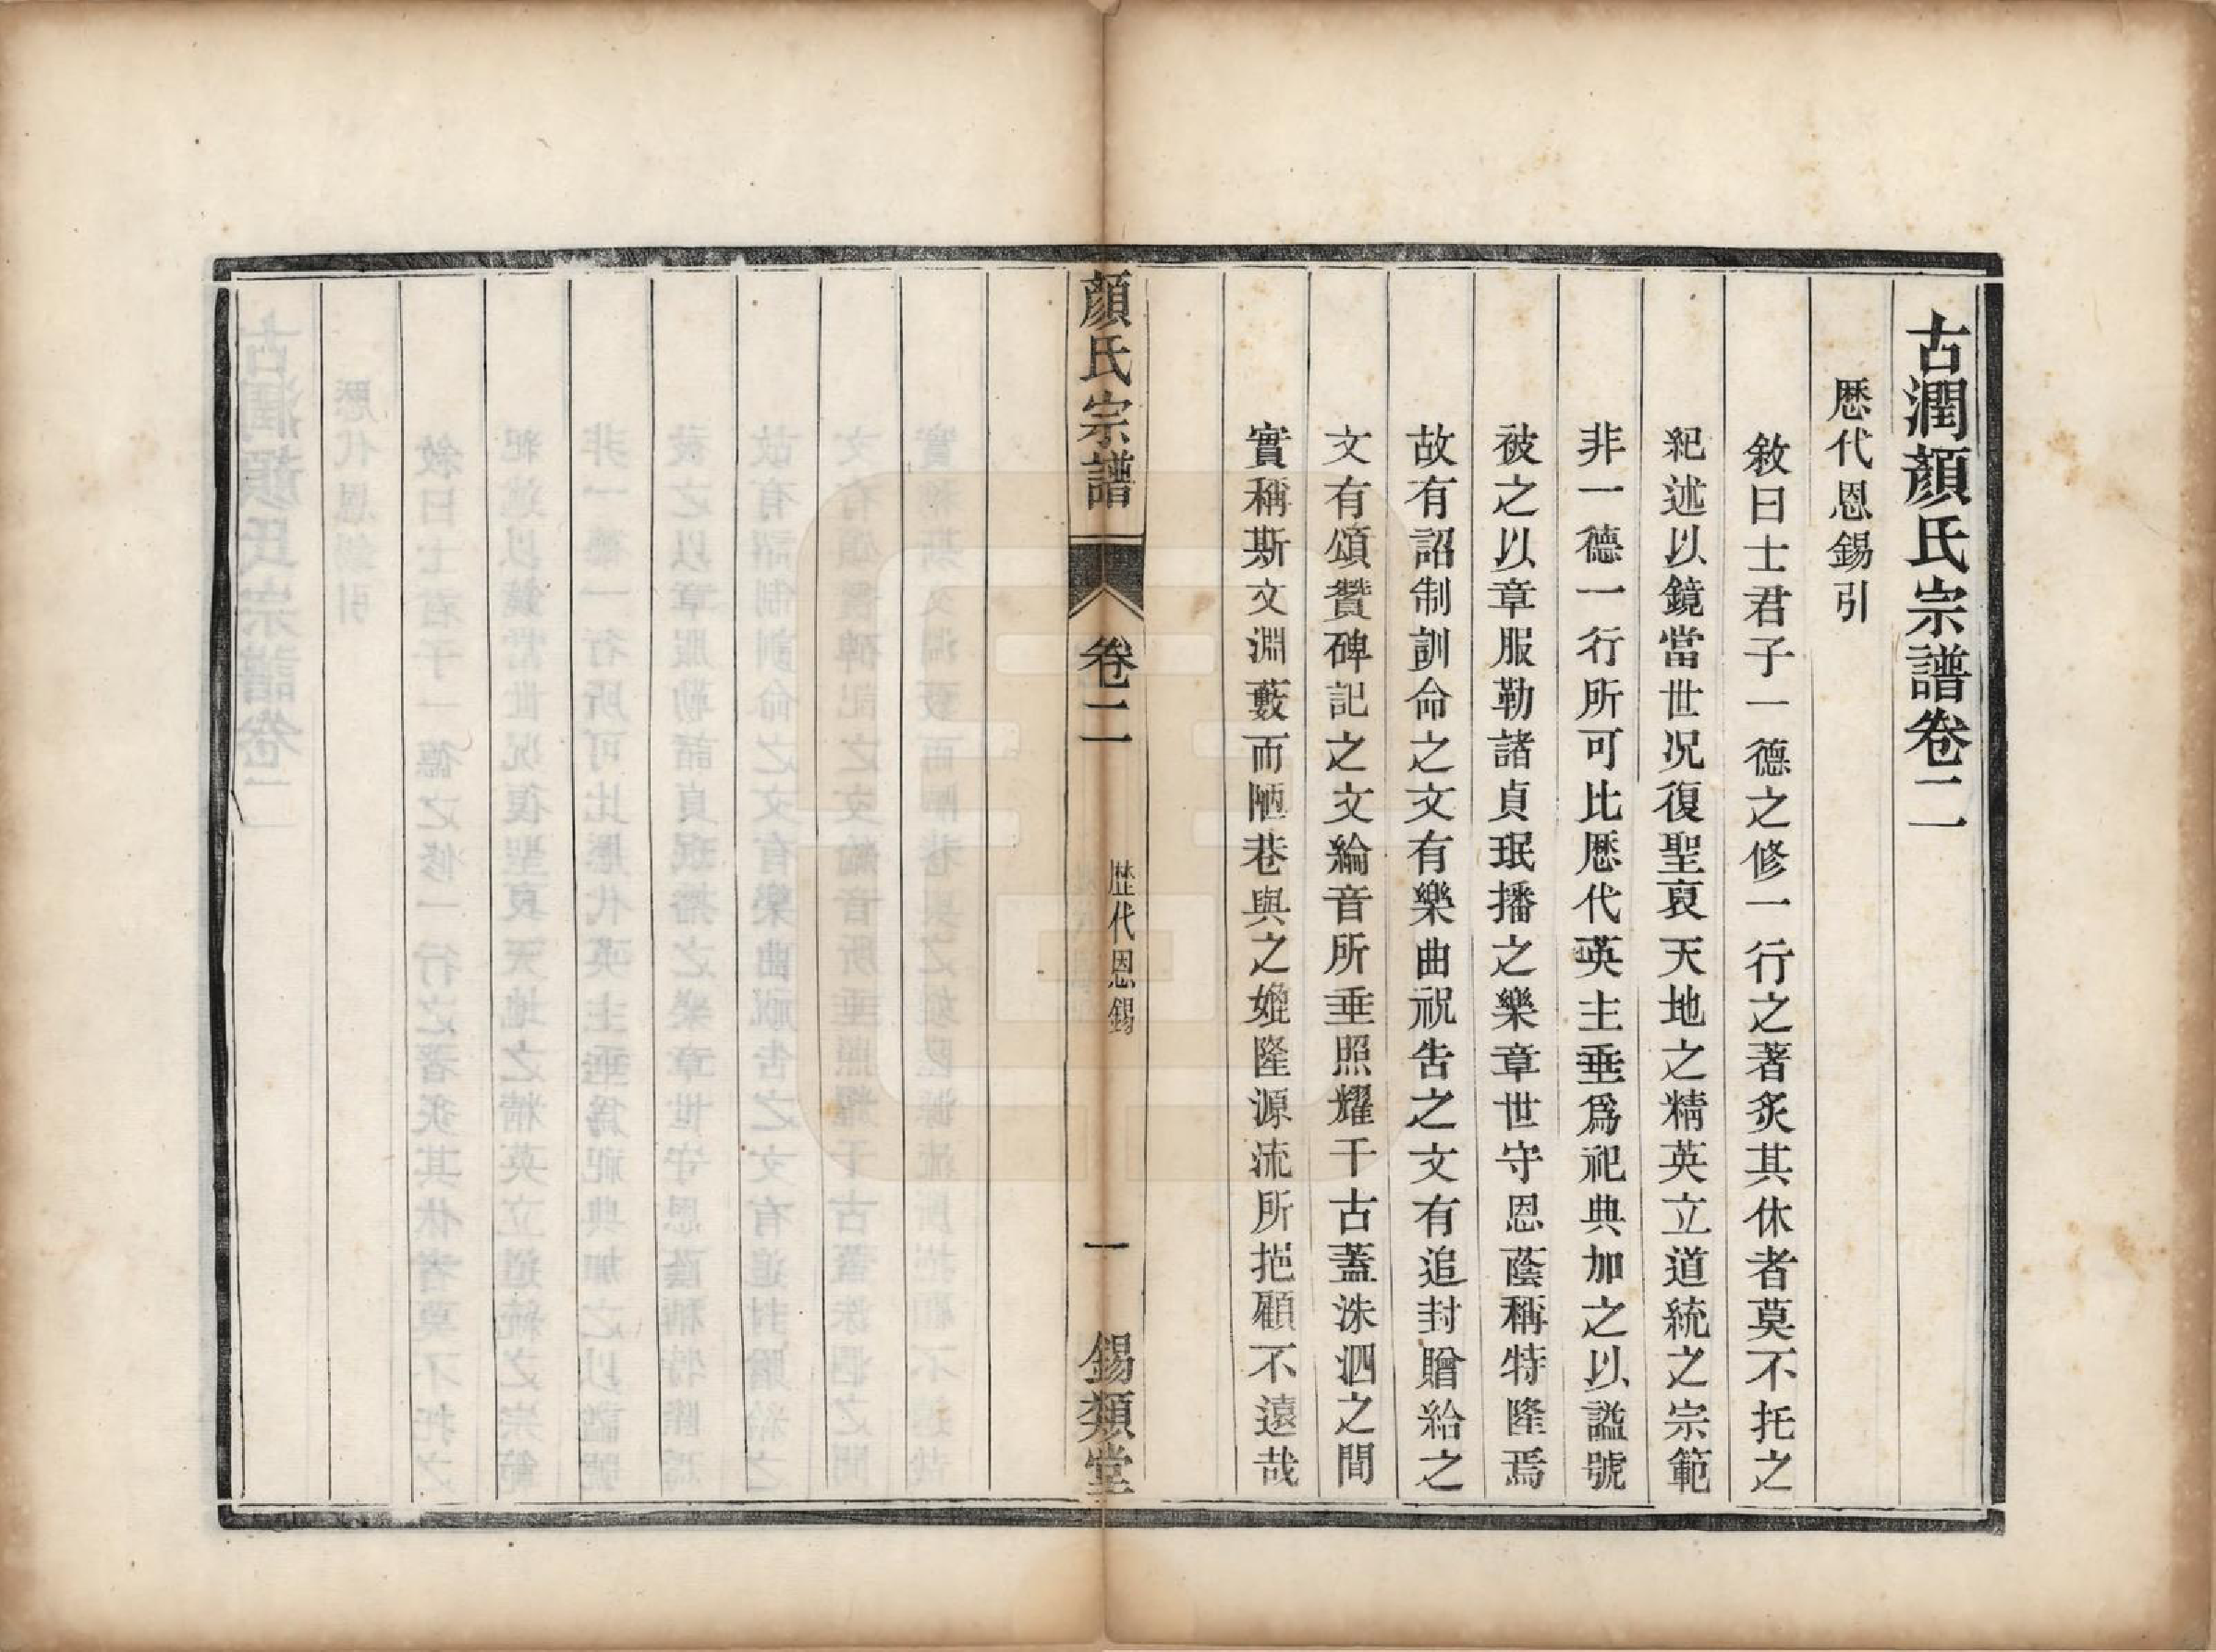 古潤顏氏宗譜卷二
歴代恩錫引
敘曰士君子一德之修一行之著炙其休者莫不托之
紀述以鏡當世况復聖裒天地之精英立道統之宗範
非一德一行所可比歴代英主垂爲祀典加之以謚號
被之以章服勒諸貞珉播之樂章世守恩蔭稱特隆焉
故有詔制訓命之文有樂曲祝告之文有追封贈給之
文有頌贊碑記之文綸音所垂照耀千古蓋洙泗之間
實稱斯文淵藪而陋巷與之媲隆源流所挹顧不遠哉
顏氏宗譜
卷二
歴代恩錫
一
錫類堂